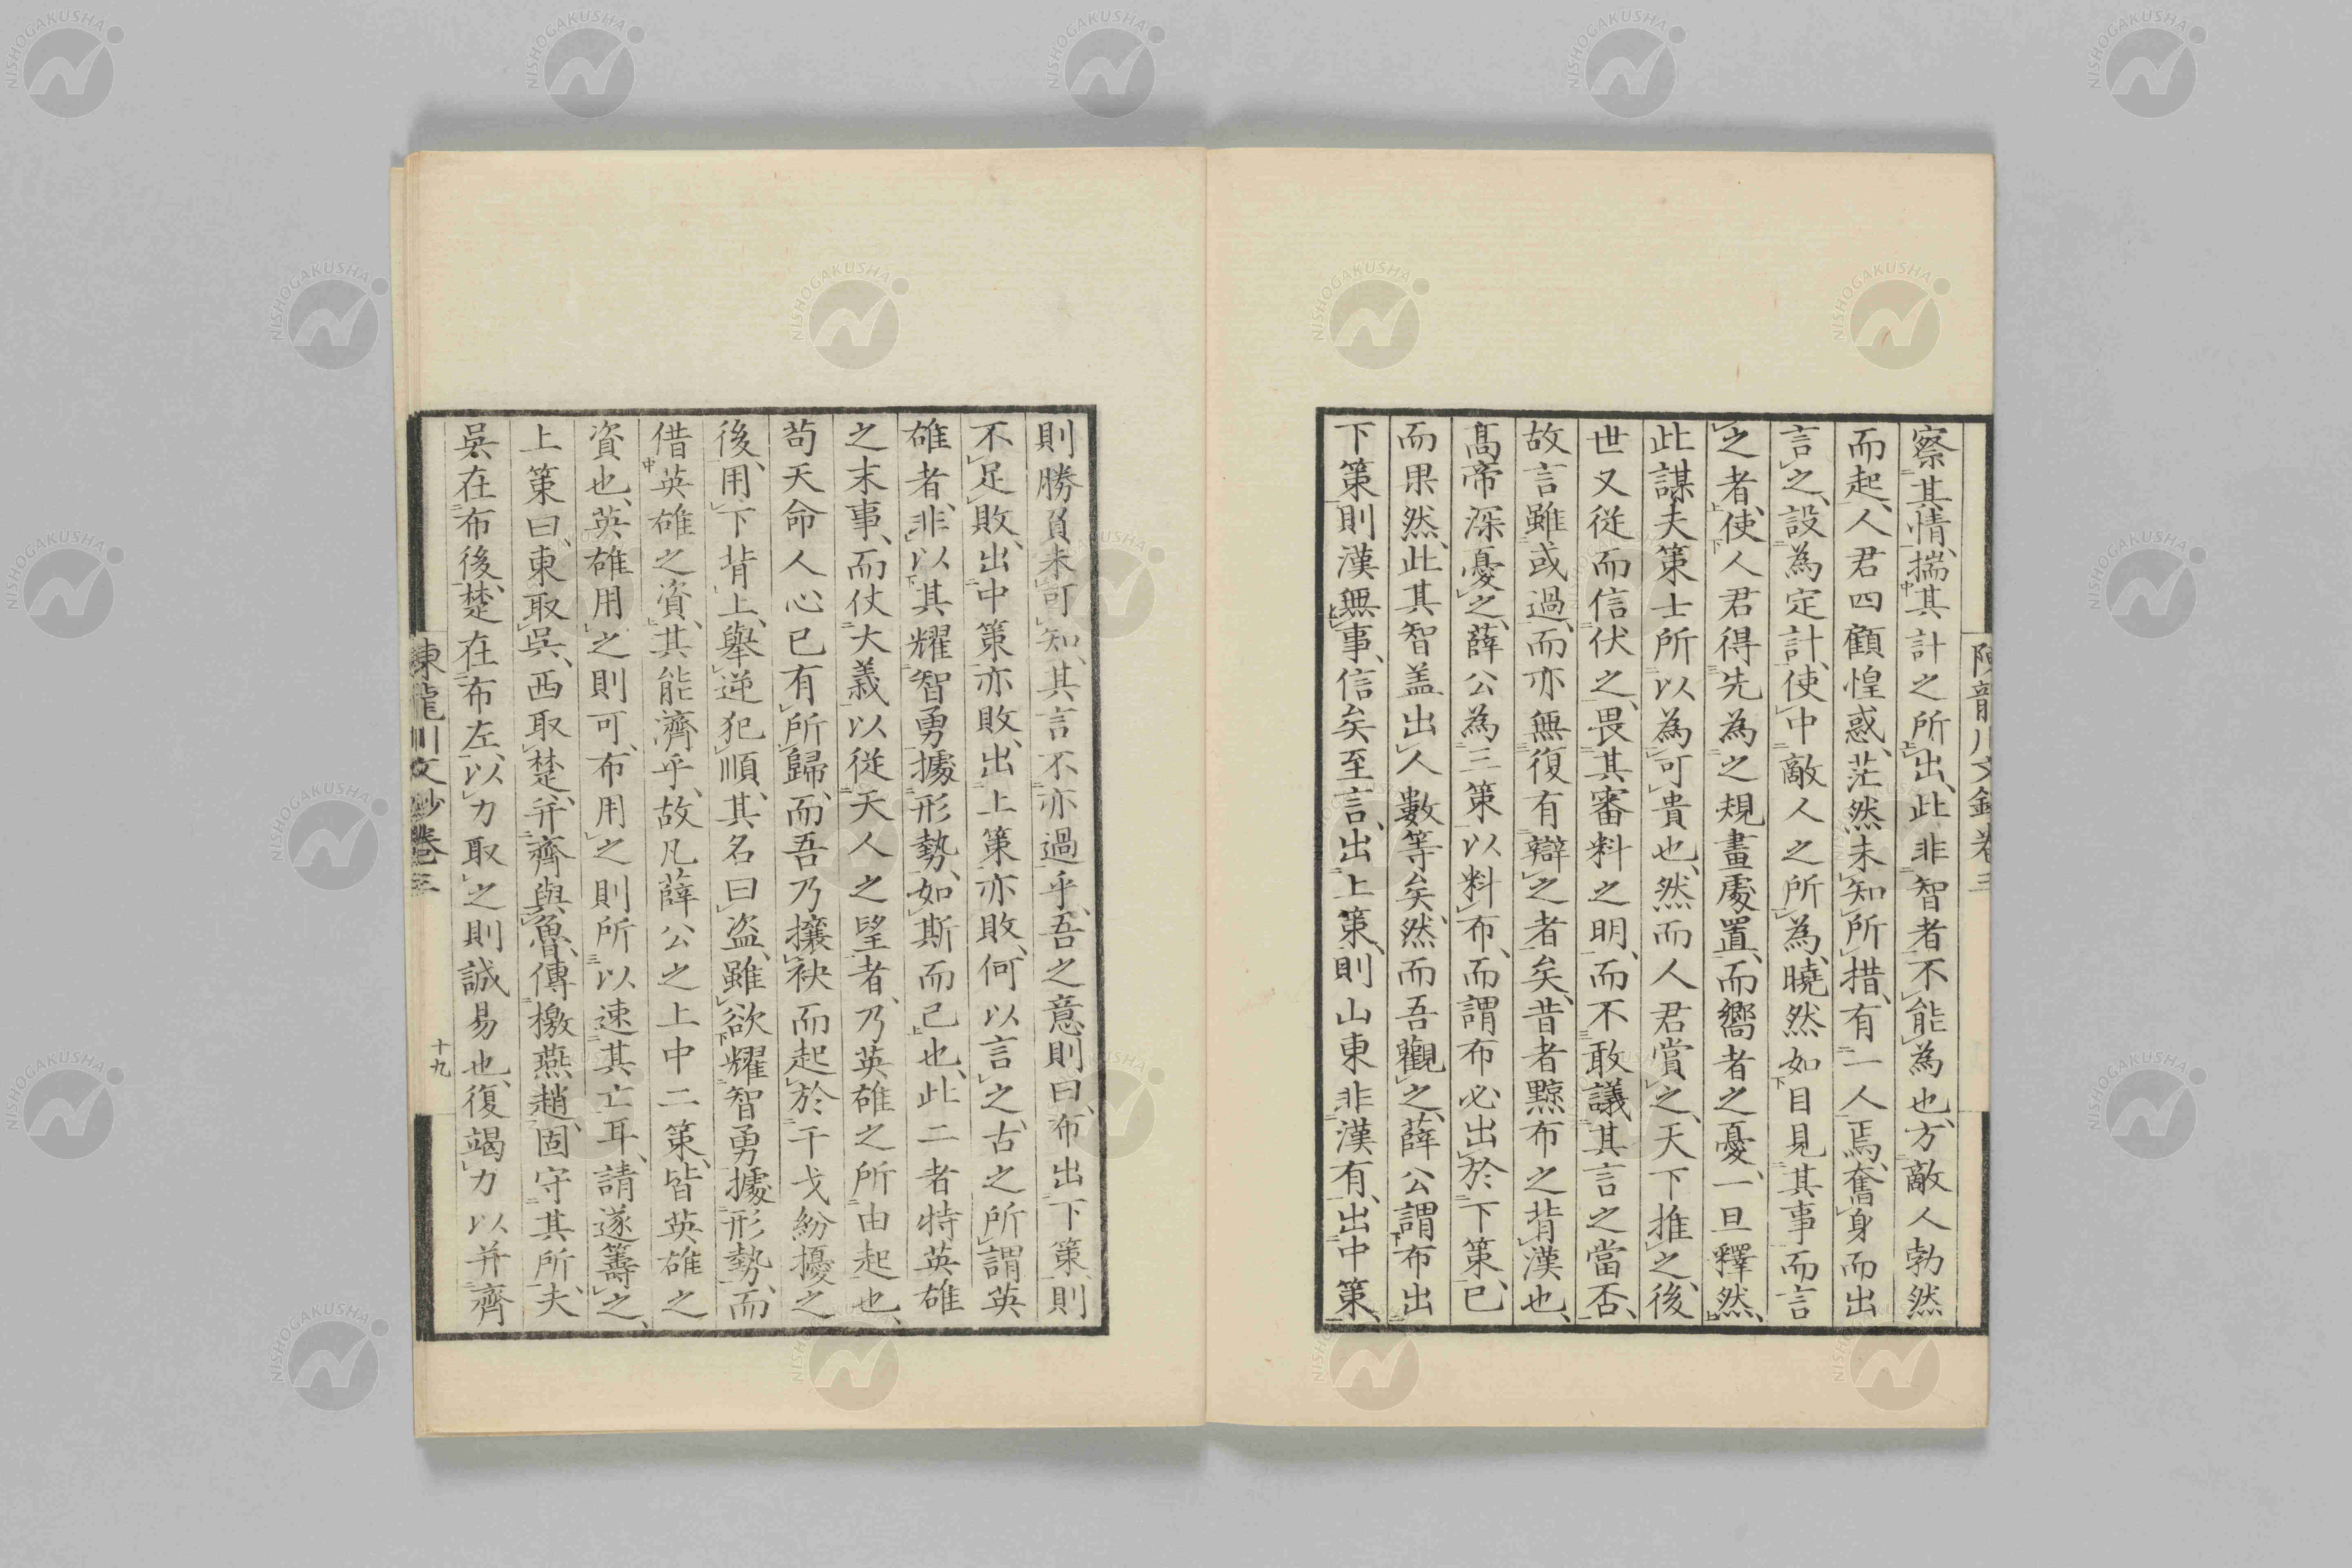 察其情、揣其計之所出、此非智者不能為也、方敵人勃然
而起、人君四顧惶惑、茫然未知所措、有一人焉、奮身而出
言之、設為定計、使中敵人之所為、曉然如目見其事而言
之者、使人君得先為之規畫處置、而嚮者之憂、一旦釋然、
此謀夫策士所以為可貴也、然而人君賞之、天下推之、後
世又從而信伏之、畏其審料之明、而不敢議其言之當否、
故言雖或過、而亦無復有辯之者矣、昔者黥布之背漢也、
高帝深憂之、薛公為三策以料布、而謂布必出於下策、已
而果然、此其智盖出人數等矣、然而吾觀之、薛公謂布出
下策、則漢無事、信矣、至言出上策、則山東非漢有、出中策、
則勝負未可知、其言不亦過乎、吾之意則曰、布出下策、則
不足敗、出中策亦敗、出上策亦敗、何以言之、古之所謂英
雄者、非以其耀智勇據形勢、如斯而已也、此二者特英雄
之末事、而仗大義以從天人之望者、乃英雄之所由起也、
苟天命人心已有所歸、而吾乃攘袂而起於干戈紛擾之
後、用下背上、舉逆犯順、其名曰盗、雖欲耀智勇據形勢、而
借英雄之資、其能濟乎、故凡薛公之上中二策、皆英雄之
資也、英雄用之則可、布用之則所以速其亡耳、請遂籌之、
上策曰、東取吳、西取楚、并齊與魯、傳檄燕趙、固守其所、夫
吳在布後、楚在布左、以力取之則誠易也、復竭力以并齊
陳龍川文鈔卷三
十九
NISHOGAKUSHA